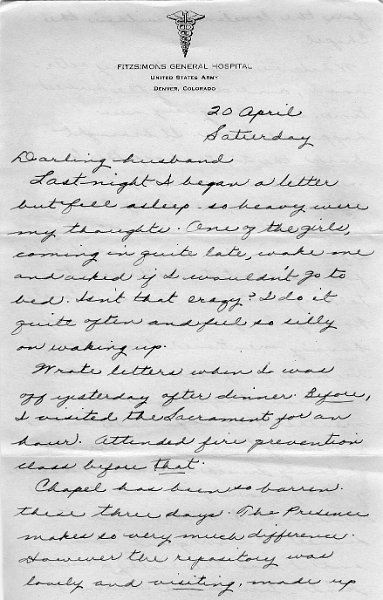 FITZSIMONS GENERAL HOSPITAL
UNITED STATES ARMY
DENVER, COLORADO
20 April
Saturday
Darling husband
Last night I began a letter
but fell asleep - so heavy were
my thoughts. One of the girls,
coming in quite late, woke me
and asked if I wouldn't go to
bed. Isn't that crazy? I do it
quite often and feel so silly
on waking up.
Wrote letters when I was
off yesterday after dinner. Before,
I visited the Sacrament for an
hour. Attended fire prevention
class before that.
Chapel has been so barren
these three days. The Presence
makes so very much difference.
However the repository was
lovely and visiting, made up